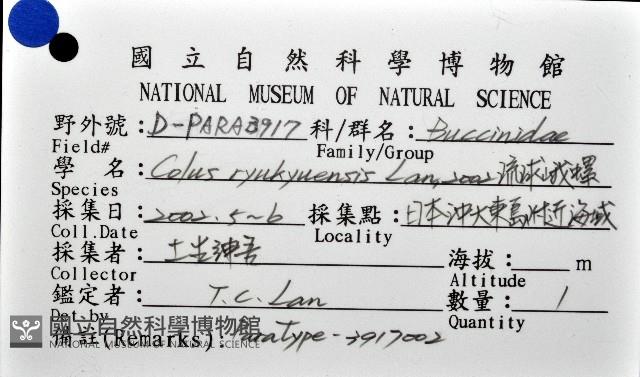 國立自然科學博物館
NATIONAL MUSEUM OF NATURAL SCIENCE
野外號：D-PARA3917 科/群名：Buccinidae
Field# Family/Group
學 名：Colus ryukyuensis Lan, 2002 琉球峨螺
Species
採集日：2002.5~6 採集點：日本沖大東島附近海域
Coll.Date Locality
採集者：土生紳吾 海拔： m
Collector Altitude
鑑定者：T.C.Lan 數量：1
Det.by Quantity
備註(Remarks)：ParaType-3917002
國立自然科學博物館
NATIONAL MUSEUM OF NATURAL SCIENCE